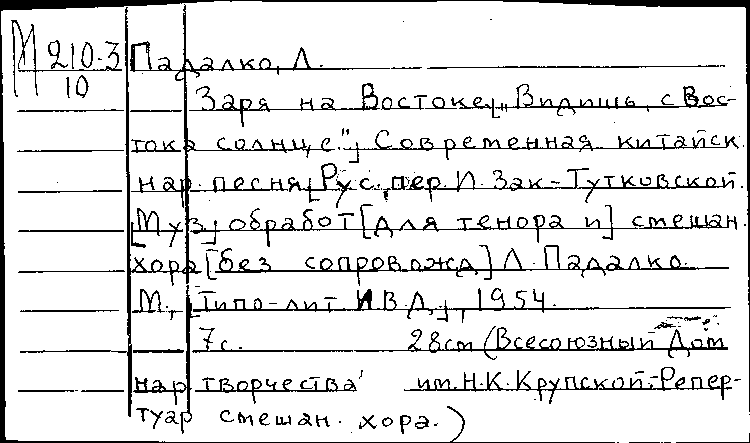 М 210-3 Падалко, Л.
10
Заря на Востоке[„Видишь, с Вос-
тока солнце."] Современная китайск.
нар. песня[Рус. пер. И. Зак-Тутковской.
[Муз] обработ[для тенора и] смешан.
хора[без сопровожд] Л. Падалко.
М., [Типо-лит И.В.Д.], 1954.
7с. 28cm (Всесоюзный Дом
нар. творчества им. Н.К. Крупской. Репер-
туар смешан. хора.)